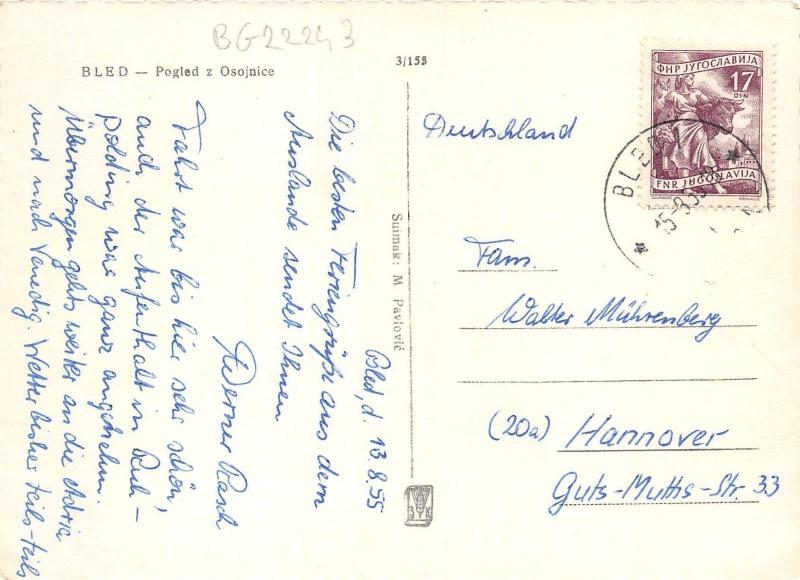 BG22243
BLED — Pogled z Osojnice
3/155
Bled, d. 13.8.55
Die besten Feriengrüße aus dem
Auslande sendet Ihnen
Werner Rasch
Fahrt war bis hier sehr schön,
auch der Aufenthalt in Ruh-
polding war ganz angenehm.
Übermorgen gehts weiter an die Adria
und nach Venedig. Wetter bisher teils-teils
Snimak: M. Pavlović
ФНР ЈУГОСЛАВИЈА
17
DIN
FNR JUGOSLAVIJA
BLED 1
15-8-55
Deutschland
Fam.
Walter Mührenberg
(20a) Hannover
Guts-Muths-Str. 33